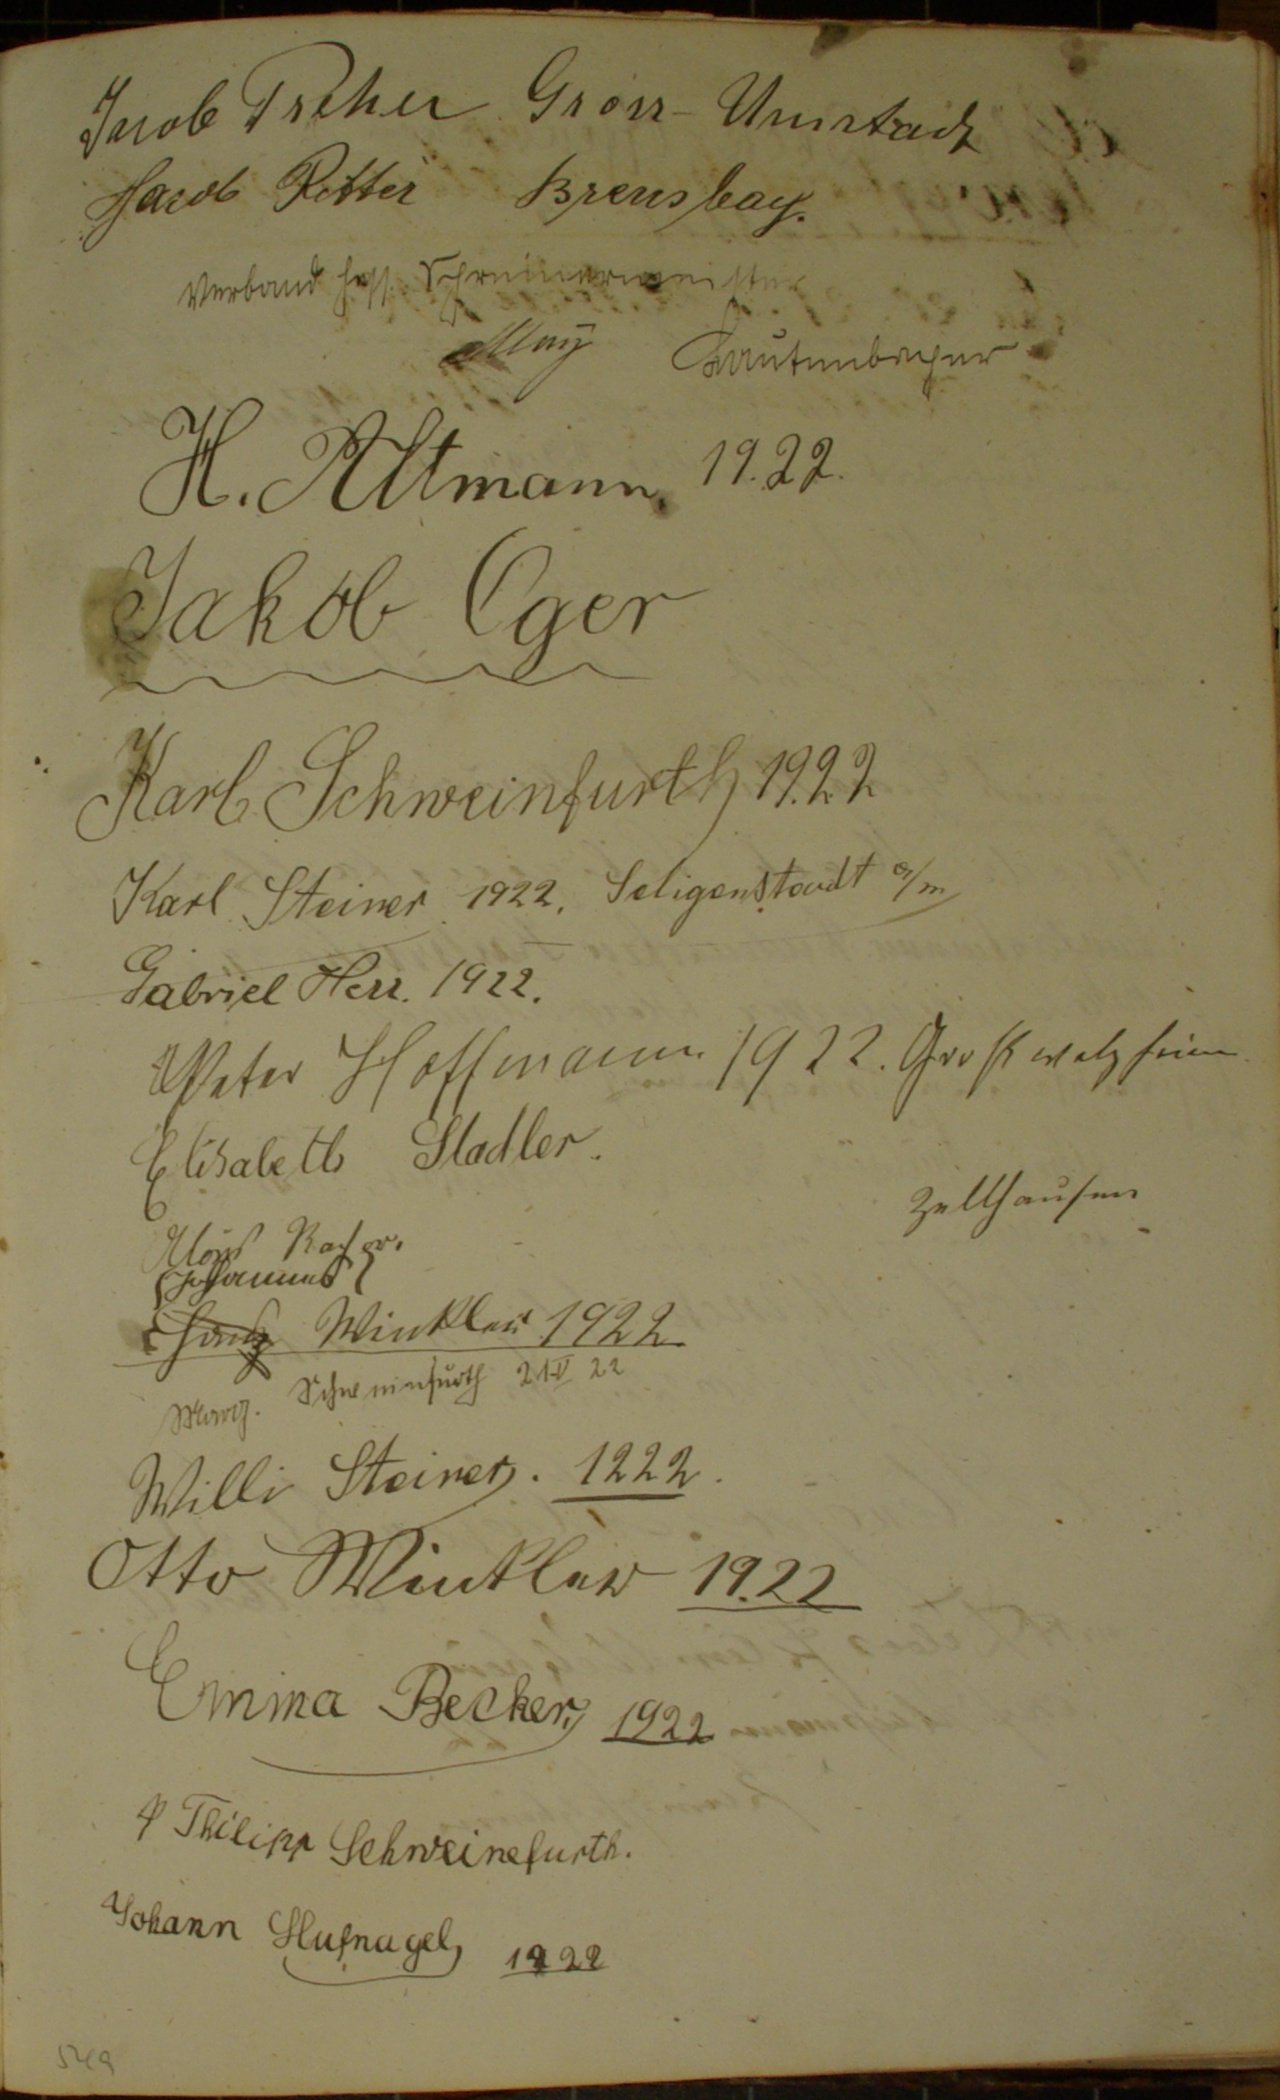 Jacob Gross-Umstadt
Jacob Ritter Brensbay.
Verband hess. Schreinermeister
May Lautenbacher
H. Altmann, 19.22.
Jakob Eger
Karl Schweinfurth 19.22
Karl Steiner 1922. Seligenstandt a/m
Gabriel Herr. 1922.
Peter Hoffmann 1922. Großwelzheim
Elisabeth Stadler.
Zellhausen
Alois
Johannes
Winkler 1922
Marg. Schweinfurth 21 V 22
Willi Steiner. 1222.
Otto Winkler 19.22
Emma Becker, 1922
P Philipp Schweinefurth.
Johann Hufnagel, 1922